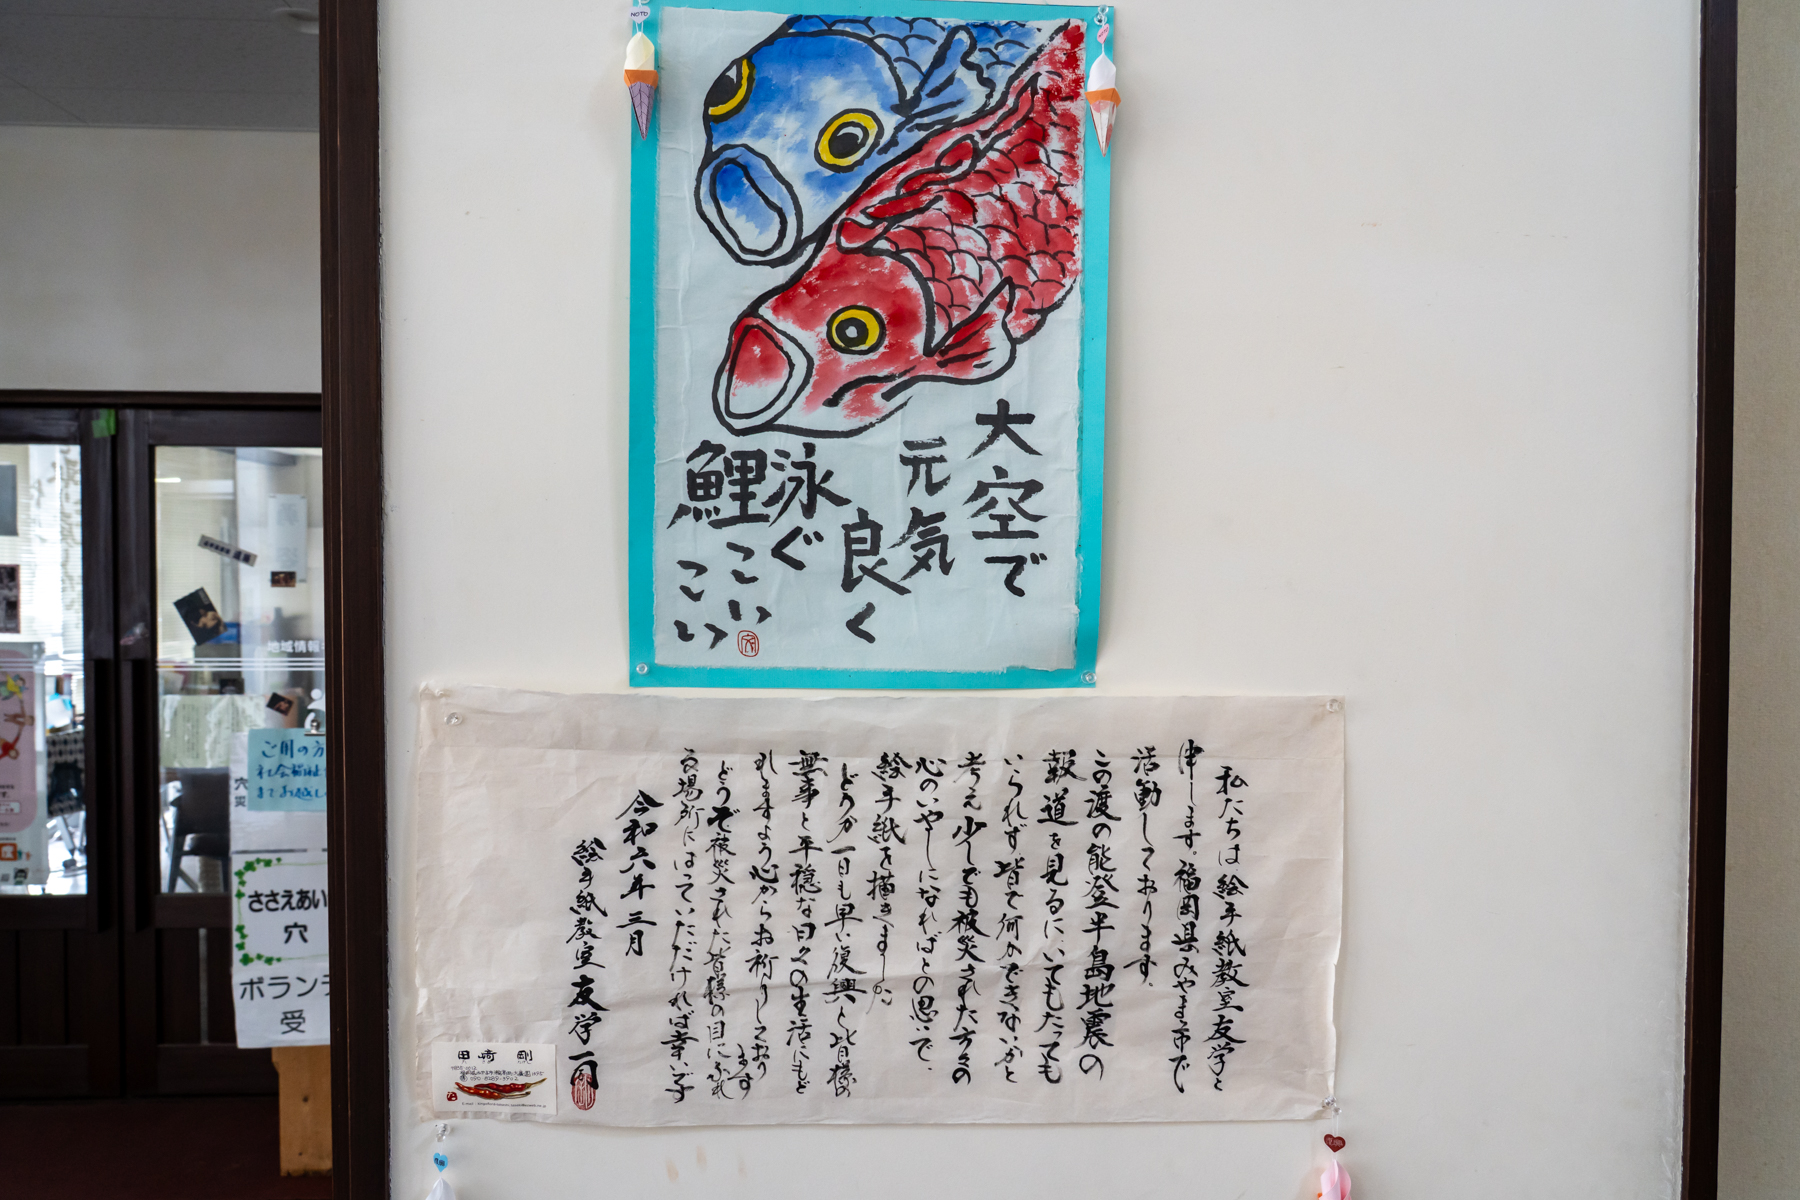 大空で
元気
良く
泳ぐ
鯉
こい
こい
私たちは絵手紙教室友学と
申します。福岡県みやま市で
活動しております。
この度の能登半島地震の
報道を見るにいてもたっても
いられず皆で何かできないかと
考え少しでも被災された方々の
心のいやしになればとの思いで、
絵手紙を描きました
どうか一日も早い復興と皆様の
無事と平穏な日々の生活にもど
れますよう心からお祈りしており
ます
どうぞ被災された皆様の目にふれ
る場所にはっていただければ幸いです
令和六年三月
絵手紙教室友学一同
田崎 剛
NOTO
地域情報
ご用の方
社会福祉
までお越し
ささえあい
穴
ボラン
受